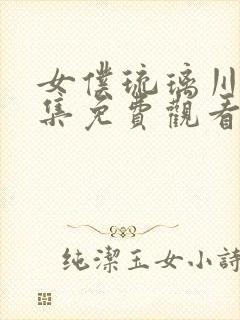 女僕琉璃川
集免費觀看
純潔玉女小詩